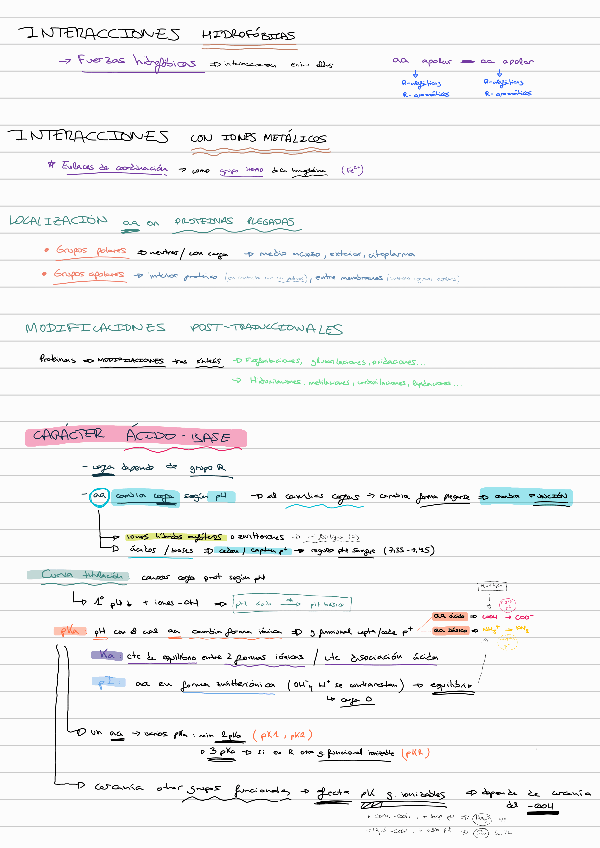 INTERACCIONES HIDROFÓBICAS
→ Fuerzas hidrofóbicas → interaccionan entre ellos
aa apolar — aa apolar
R-alifáticos R-alifáticos
R-aromáticos R-aromáticos
INTERACCIONES CON IONES METÁLICOS
* Enlaces de coordinación → como grupo hemo de la hemoglobina (Fe²⁺)
LOCALIZACIÓN aa en PROTEINAS PLEGADAS
• Grupos polares → neutros / con carga → medio acuoso, exterior, citoplasma
• Grupos apolares → interior proteína, entre membranas
MODIFICACIONES POST-TRADUCCIONALES
Proteínas → MODIFICACIONES tras síntesis → Fosforilaciones, glicosilaciones, oxidaciones...
→ Hidroxilaciones, metilaciones, carboxilaciones, lipidaciones...
CARÁCTER ÁCIDO-BASE
- carga depende de grupo R
- aa cambia carga según pH → al cambiar cargas → cambia forma plegarse → cambia FUNCIÓN
→ iones híbridos o zwitteriones
→ ácidos / bases → ceden / captan p⁺ → regula pH sangre (7,35-7,45)
Curva titulación carga prot según pH
↳ 1º pH↓ + iones -OH → pH ácido → pH básico
pKa pH con el cual aa cambia forma iónica → g funcional capta/cede p⁺
aa ácido → COOH → COO⁻
aa básico → NH₃⁺ → NH₂
Ka: cte de equilibrio entre 2 formas iónicas / cte disociación ácida
pI: aa en forma zwitteriónica (OH⁻ y H⁺ se contrarrestan) → equilibrio
↳ carga 0
→ un aa → varios pKa: min 2 pKa (pK1, pK2)
→ 3 pKa → si en R otro g funcional ionizable (pKR)
→ cercanía otros grupos funcionales → afecta pK g. ionizables → depende de cercanía
del -COOH